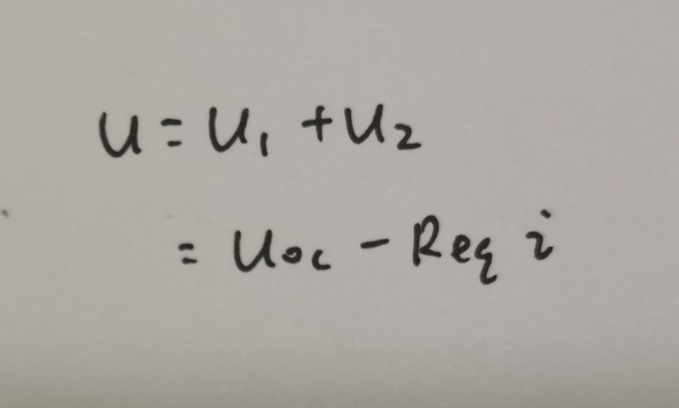 u = u₁ + u₂
= uoc - Req i